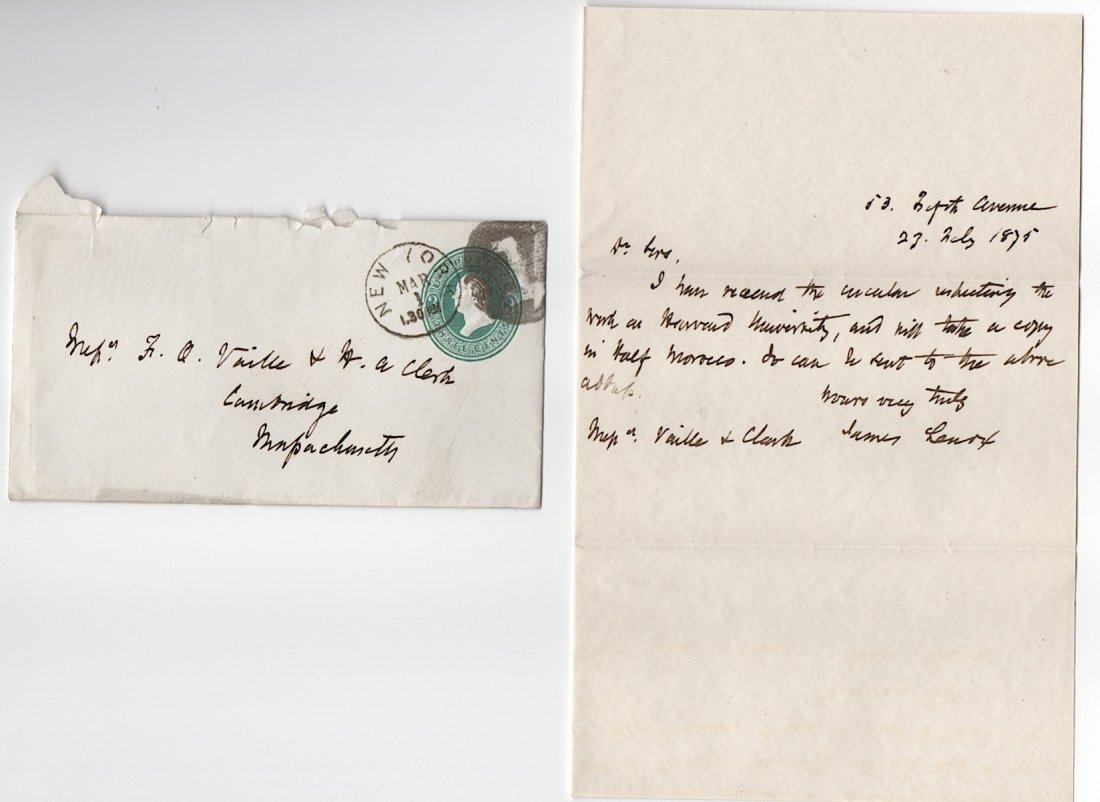 NEW YO
MAR
1
1.30 PM
U.S. POSTAGE
THREE CENTS
Mess.rs F. O. Vaille & H. A Clark
Cambridge
Massachusetts
53. Fifth Avenue
27. Feby 1875
Dr Sirs,
I have received the circular respecting the
work on Harvard University, and will take a copy
in Half Morocco. It can be sent to the above
address.
Yours very truly
Mess.rs Vaille & Clark James Lenox